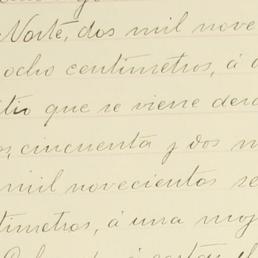 Norte, dos mil nove
ocho centímetros, á
itio que se viene
s, cincuenta y dos m
mil novecientos se
tímetros, á una